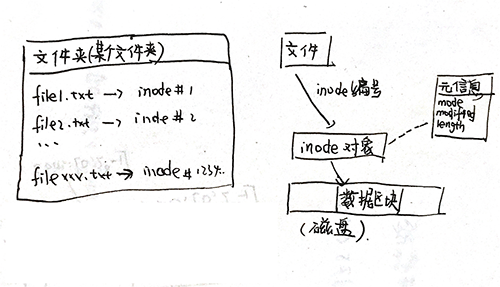 文件夹(某个文件夹)
file1.txt → inode #1
file2.txt → inode #2
...
filexxx.txt → inode #1234..
文件
inode编号
inode 对象
元信息
mode
modified
length
数据区块
(磁盘)